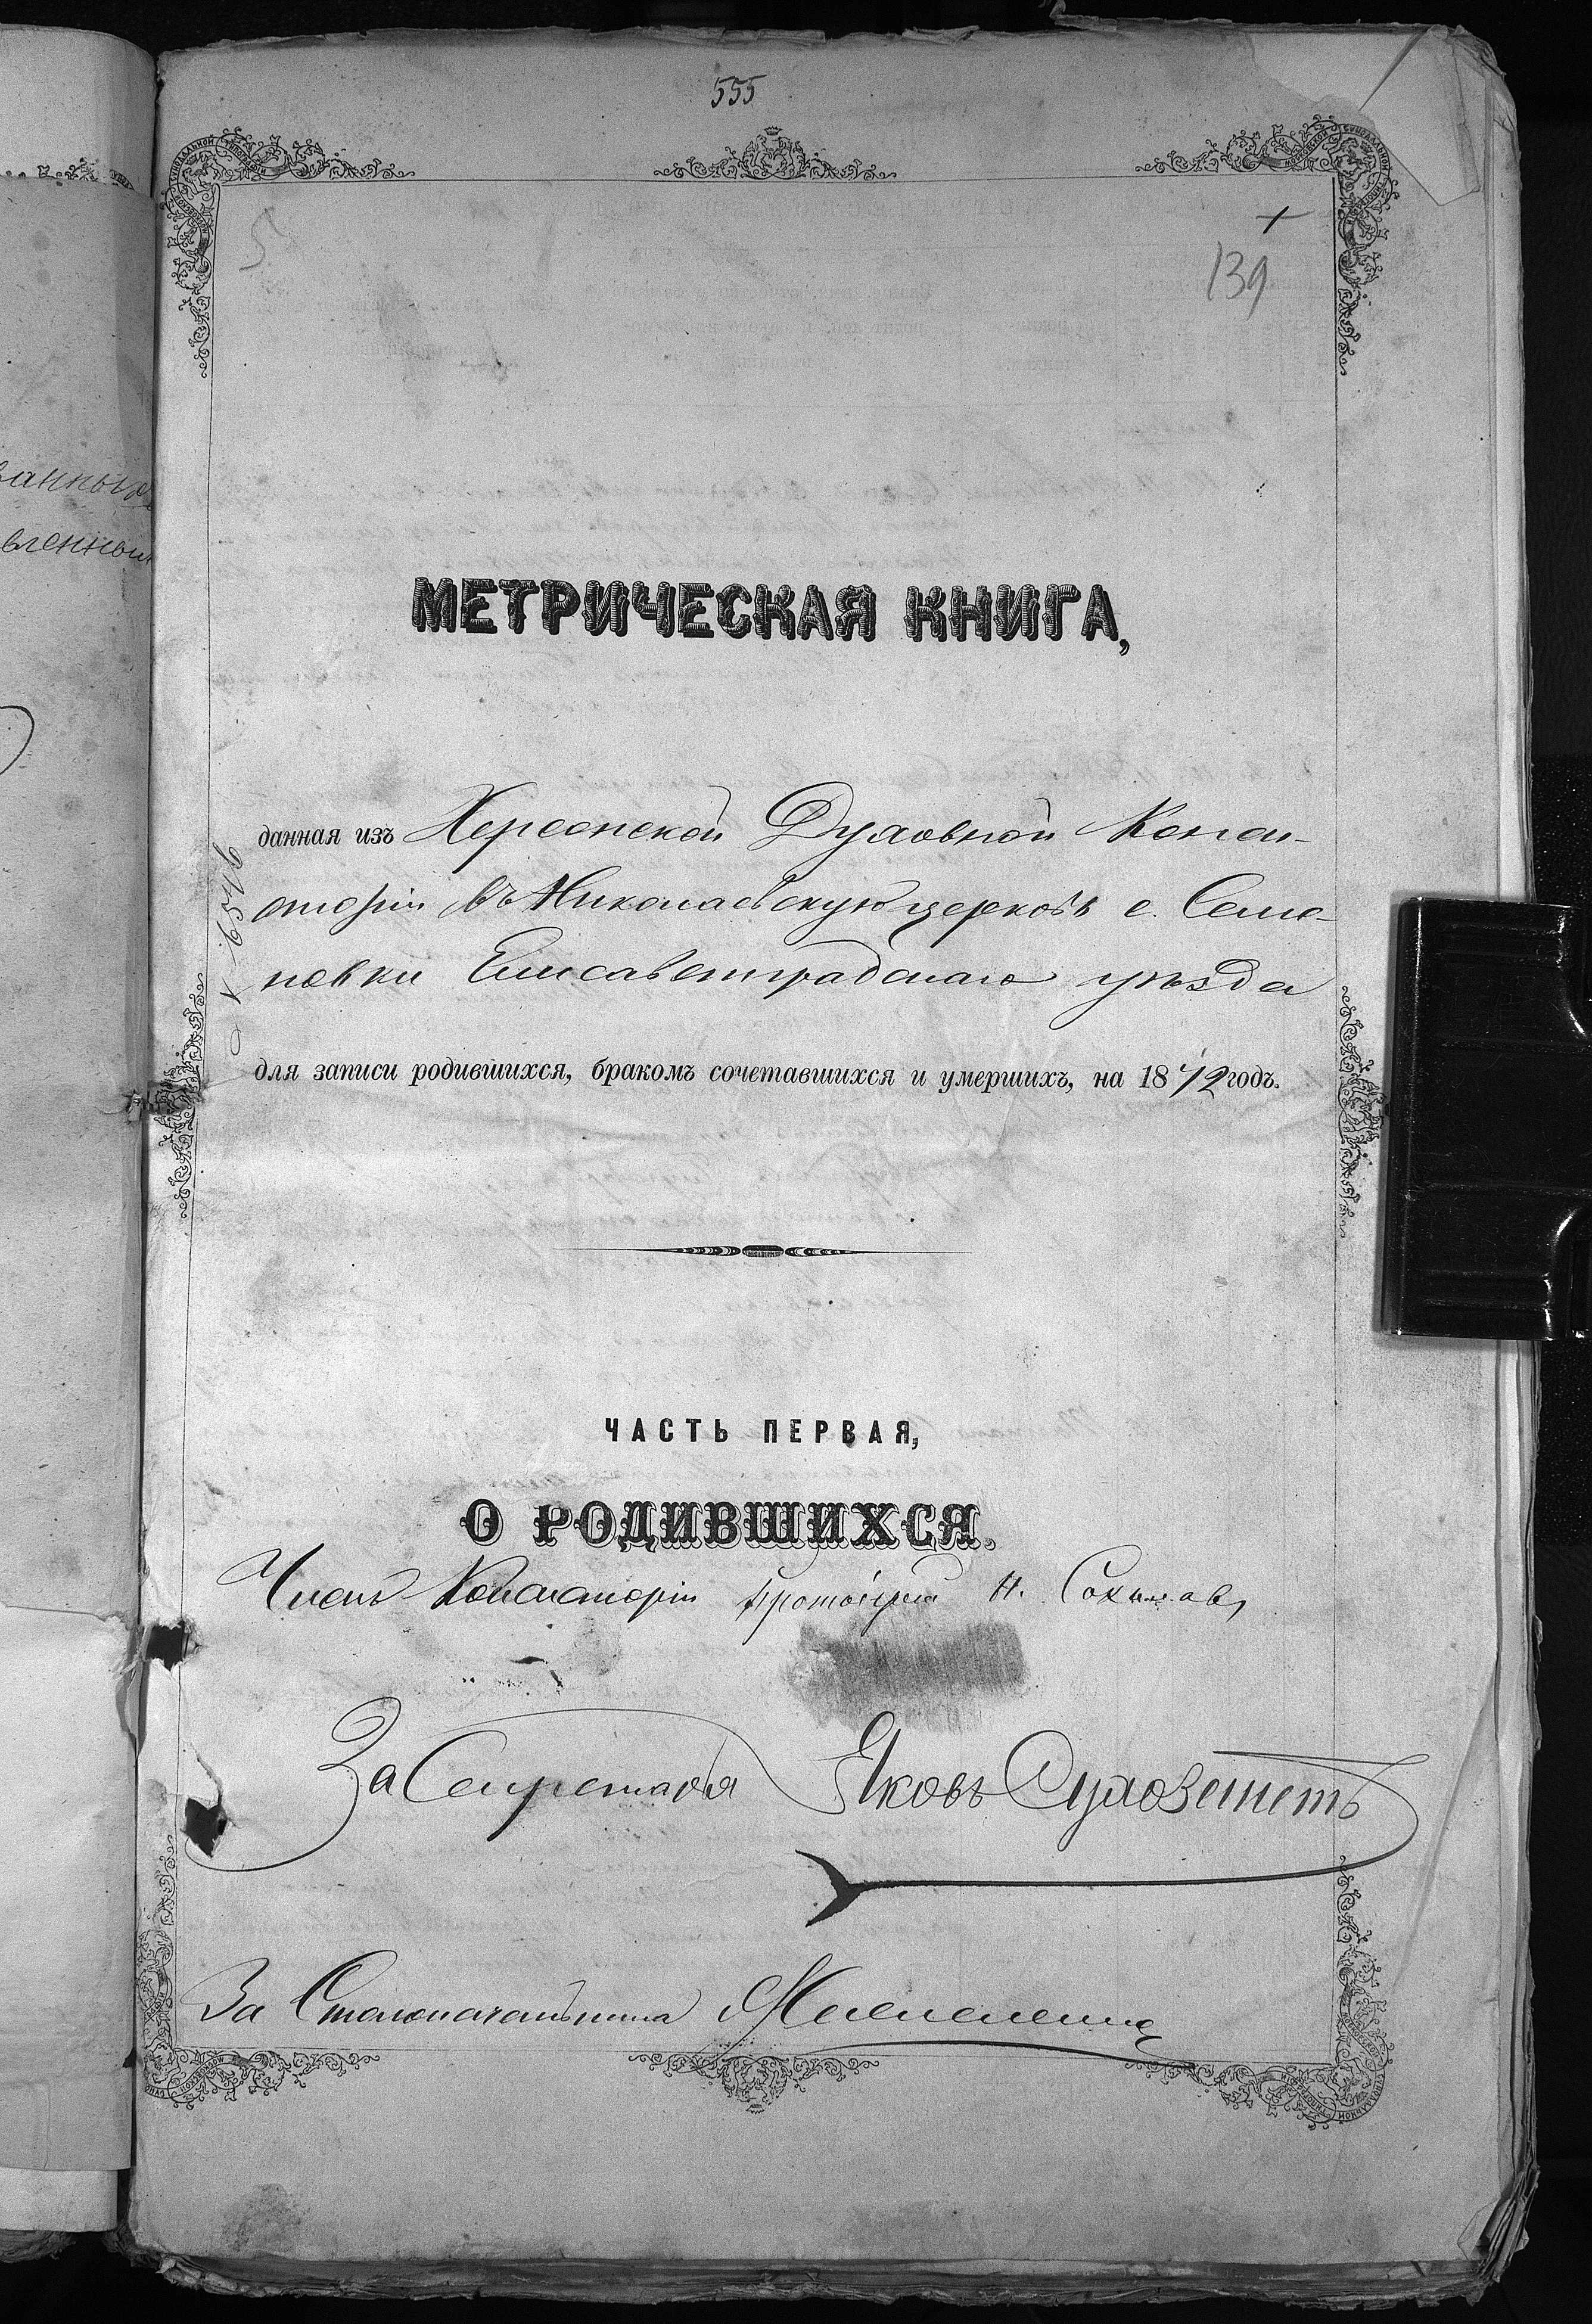 555
5
139
МЕТРИЧЕСКАЯ КНИГА,
данная изъ Херсонской Духовной Конси-
сторіи въ Николаевскую церковь с. Семе-
новки Елисаветградскаго уѣзда
для записи родившихся, бракомъ сочетавшихся и умершихъ, на 1872 годъ.
ЧАСТЬ ПЕРВАЯ,
О РОДИВШИХСЯ.
Членъ Консисторіи Протоіерей Н.
За Секретаря Яковъ
За Столоначальника